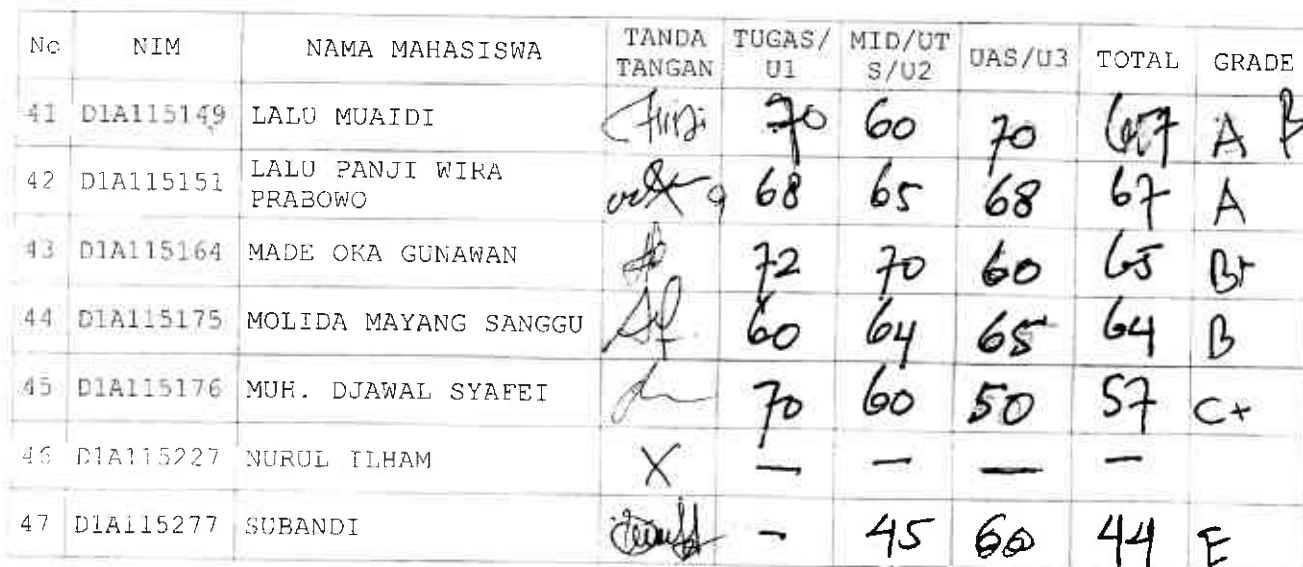 No NIM NAMA MAHASISWA TANDA TANGAN TUGAS/ U1 MID/UT S/U2 UAS/U3 TOTAL GRADE
41 D1A115149 LALU MUAIDI 70 60 70 67 A B
42 D1A115151 LALU PANJI WIRA PRABOWO 68 65 68 67 A
43 D1A115164 MADE OKA GUNAWAN 72 70 60 65 B+
44 D1A115175 MOLIDA MAYANG SANGGU 60 64 65 64 B
45 D1A115176 MUH. DJAWAL SYAFEI 70 60 50 57 C+
46 D1A115227 NURUL ILHAM X — — — —
47 D1A115277 SUBANDI - 45 60 44 E